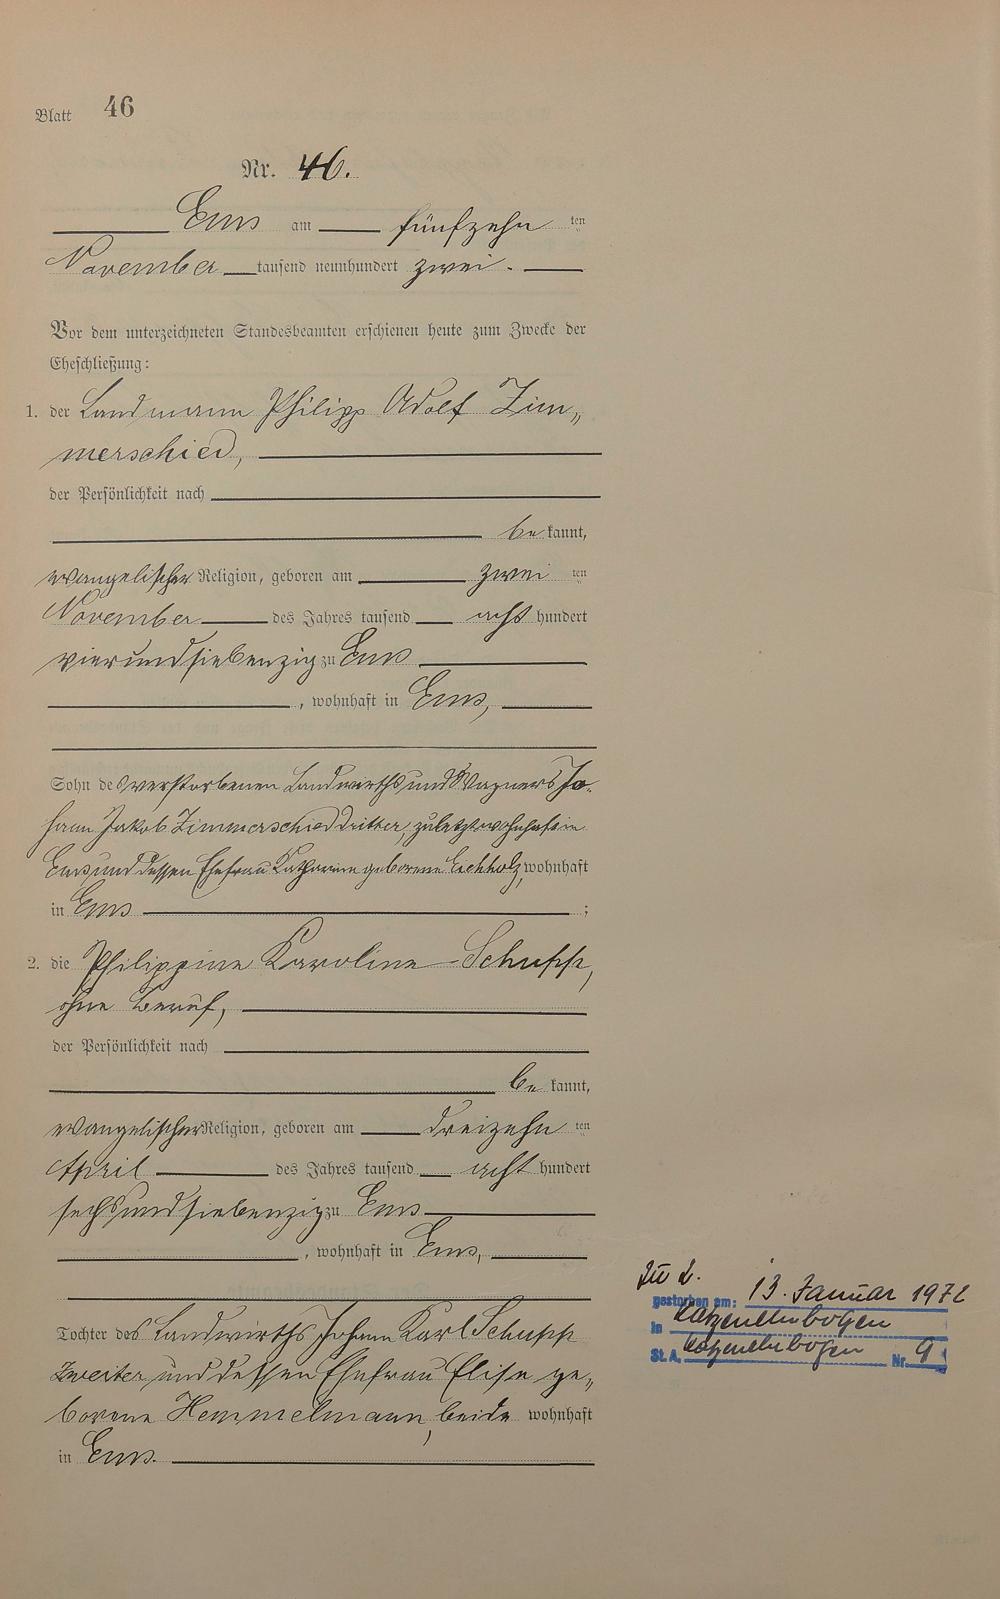 Blatt 46
Nr. 46.
Ems am fünfzehn ten
November tausend neunhundert zwei.
Vor dem unterzeichneten Standesbeamten erschienen heute zum Zwecke der
Eheschließung:
1. der Landmann Philipp Adolf Zim„
merschied,
der Persönlichkeit nach
be kannt,
evangelischer Religion, geboren am zwei ten
November des Jahres tausend acht hundert
vierundsiebenzig zu Ems
, wohnhaft in Ems,
Sohn des verstorbenen Landwirths und Wagners Jo-
hann Jakob Zimmerschied Dritter, zuletzt wohnhaft in
Ems und dessen Ehefrau Katharine geborene Eichholz, wohnhaft
in Ems ;
2. die Philippine Karoline Schupp,
ohne Beruf,
der Persönlichkeit nach
be kannt,
evangelischer Religion, geboren am dreizehn ten
April des Jahres tausend acht hundert
sechsundsiebenzig zu Ems
, wohnhaft in Ems,
Tochter des Landwirths Johann Karl Schupp
Zweiter und dessen Ehefrau Elise ge„
borene Hemmelmann, beide wohnhaft
in Ems.
Zu 2.
gestorben am: 13. Januar 1972
in Katzenelnbogen
St.A. Katzenelnbogen Nr. 9